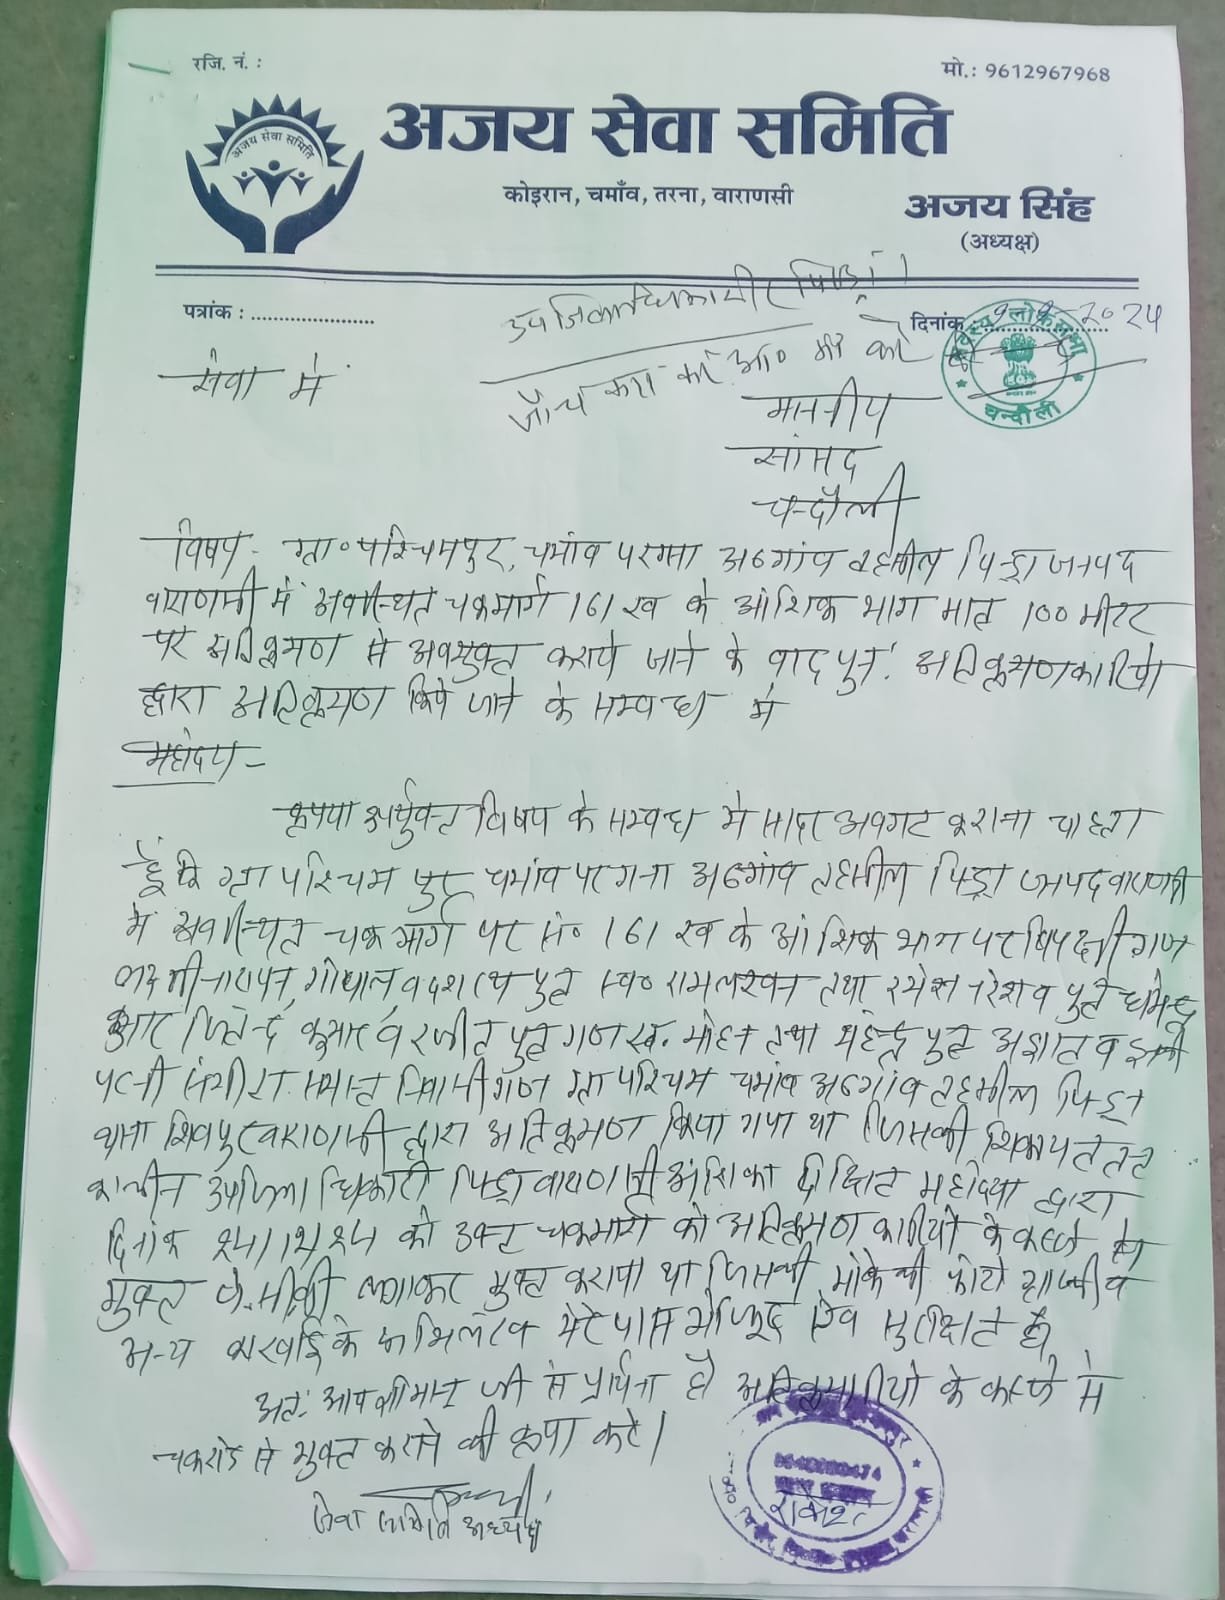 रजि. नं. :
मो.: 9612967968
अजय सेवा समिति
अजय सेवा समिति
कोइरान, चमाँव, तरना, वाराणसी
अजय सिंह
(अध्यक्ष)
उपजिलाधिकारी पिण्ड्रा।
पत्रांक : ......................
दिनांक
सदस्य लोकसभा
चन्दौली
सेवा में
जाँच करा कर
माननीय
सांसद
चन्दौली
विषय - ग्रा० पश्चिमपुर, चमांव परगना अठगांव तहसील पिन्ड्रा जनपद
वाराणसी में अवस्थित चकमार्ग 161 ख के आंशिक भाग मात्र 100 मीटर
पर अतिक्रमण से अवमुक्त कराये जाने के बाद पुनः अतिक्रमणकारियो
द्वारा अतिक्रमण किये जाने के सम्बन्ध में
महोदय -
कृपया उपर्युक्त विषय के सम्बन्ध मे सादर अवगत कराना चाहता
हूँ कि ग्रा पश्चिम पुर चमांव परगना अठगांव तहसील पिंड्रा जनपद वाराणसी
में अवस्थित चक मार्ग पर सं० 161 ख के आंशिक भाग पर विपक्षी गण
लक्ष्मीनारायन, गोपाल, व दशरथ पुत्र स्व० रामलखन तथा रमेश नरेश व पुत्र धर्मेन्द्र
कुमार जितेन्द्र कुमार व रंजीत पुत्र गण स्व. मोहन तथा महेन्द्र पुत्र अज्ञात व इनकी
पत्नी समस्त निवासीगण ग्रा पश्चिम चमांव अठगांव तहसील पिंड्रा
थाना शिवपुर वाराणसी द्वारा अतिक्रमण किया गया था जिसकी शिकायत तत
कालीन उपजिलाधिकारी पिंड्रा वाराणसी अंशिका दीक्षित महोदया द्वारा
दिनांक को उक्त चकमार्ग को अतिक्रमण कारियो के कब्जे से
मुक्त जे.सी.बी लगाकर मुक्त कराया था जिसकी मौके की फोटो ग्राफी व
अन्य कारवाई के अभिलेख मेरे पास मौजूद एंव सुरक्षित है
अतः आप श्रीमान जी से प्रार्थना है अतिक्रमणरियो के कब्जे से
चकरोड से मुक्त कराने की कृपा करे।
सेवा समिति अध्यक्ष
राकेश